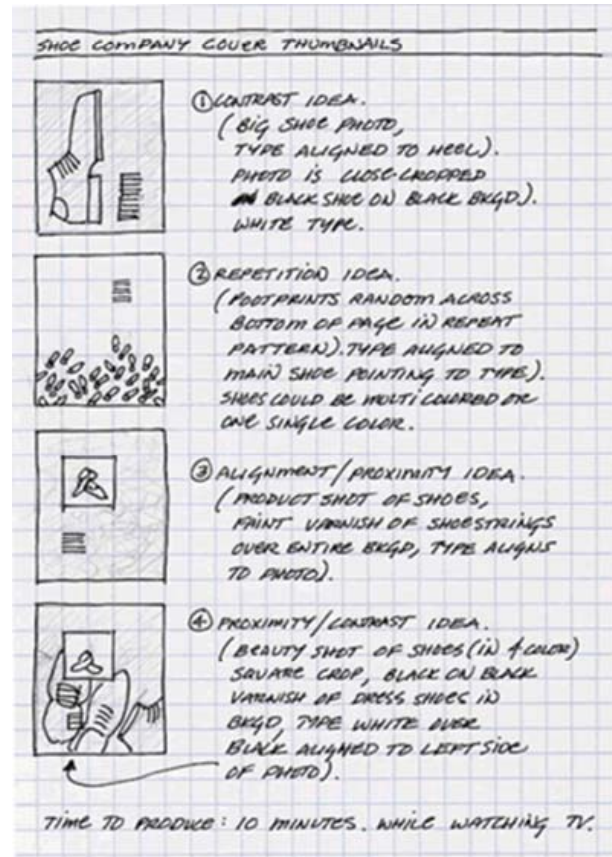 SHOE COMPANY COVER THUMBNAILS
① CONTRAST IDEA.
(BIG SHOE PHOTO,
TYPE ALIGNED TO HEEL).
PHOTO IS CLOSE-CROPPED
BLACK SHOE ON BLACK BKGD).
WHITE TYPE.
② REPETITION IDEA.
(FOOTPRINTS RANDOM ACROSS
BOTTOM OF PAGE IN REPEAT
PATTERN). TYPE ALIGNED TO
MAIN SHOE POINTING TO TYPE).
SHOES COULD BE MULTI COLORED OR
ONE SINGLE COLOR.
③ ALIGNMENT/PROXIMITY IDEA.
(PRODUCT SHOT OF SHOES,
FAINT VARNISH OF SHOESTRINGS
OVER ENTIRE BKGD, TYPE ALIGNS
TO PHOTO).
④ PROXIMITY/CONTRAST IDEA.
(BEAUTY SHOT OF SHOES (IN 4 COLOR)
SQUARE CROP, BLACK ON BLACK
VARNISH OF DRESS SHOES IN
BKGD, TYPE WHITE OVER
BLACK ALIGNED TO LEFT SIDE
OF PHOTO).
TIME TO PRODUCE: 10 MINUTES. WHILE WATCHING TV.